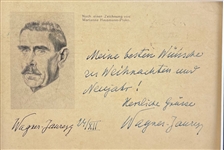 Nach einer Zeichnung von
Meine besten Wünsche
zu Weihnachten und
Neujahr!
Herzliche Grüsse
Wagner Jauregg
Wagner Jauregg 24/XII.